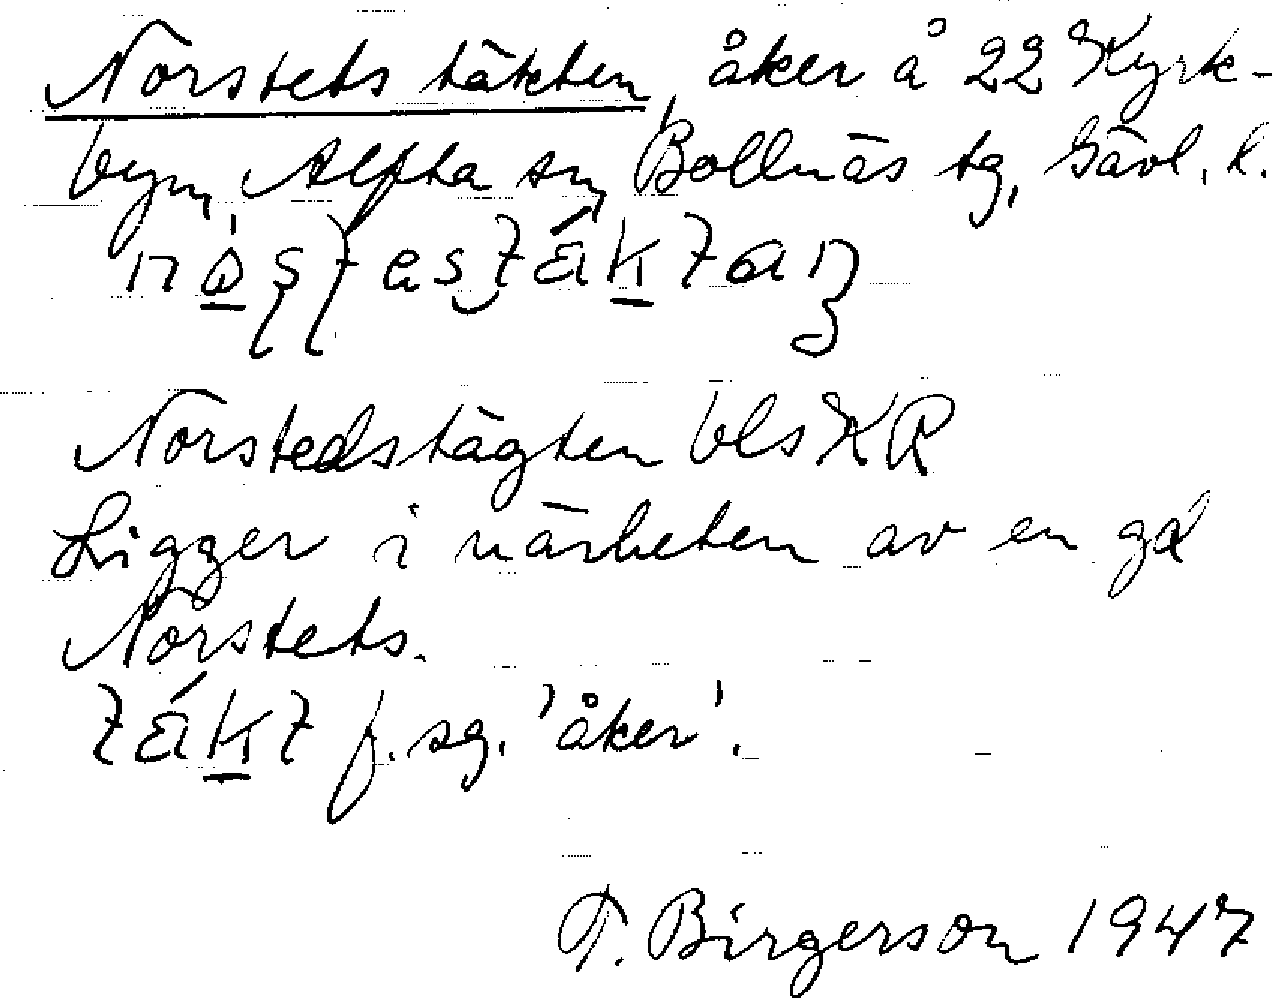 Norstets täkten, åker å 22 Kyrk-
byn, Alfta sn, Bollnäs tg, Gävl. l.
Norstedstägten bls KR
Ligger i närheten av en gd
Norstets.
f. sg. 'åker'.
T. Birgerson 1947